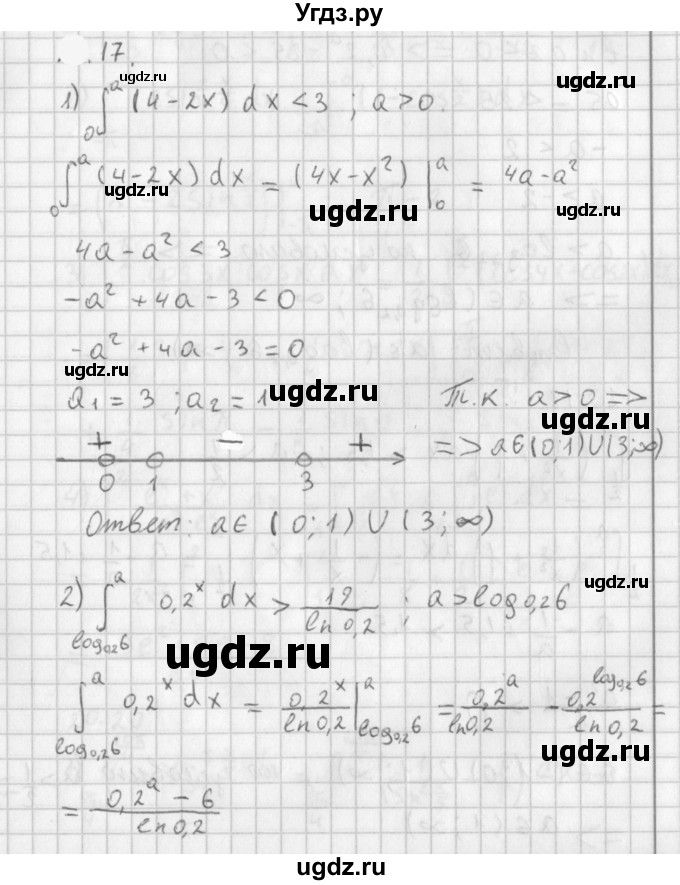 Угдз.ру
17.
ugdz.ru
1) ∫₀ᵃ (4-2x) dx < 3 ; a > 0.
ugdz.ru
∫₀ᵃ (4-2x) dx = (4x-x²) |₀ᵃ = 4a-a²
ugdz.ru
ugdz.ru
ugdz.ru
4a-a² < 3
-a² + 4a - 3 < 0
-a² + 4a - 3 = 0
ugdz.ru
ugdz.ru
a₁ = 3 ; a₂ = 1 Т.к. a > 0 =>
ugdz.ru
+ − + => a∈(0;1)∪(3;∞)
0 1 3
Ответ: a∈ (0;1) ∪ (3;∞)
ugdz.ru
2) ∫ₗₒg₀,₂6ᵃ 0,2ˣ dx > 19/ln0,2 ; a > log₀,₂6
ugdz.ru
∫ₗₒg₀,₂6ᵃ 0,2ˣ dx = 0,2ˣ/ln0,2 |ₗₒg₀,₂6ᵃ = 0,2ᵃ/ln0,2 - 0,2^log₀,₂6/ln0,2 =
ugdz.ru
= (0,2ᵃ - 6)/ln0,2
ugdz.ru